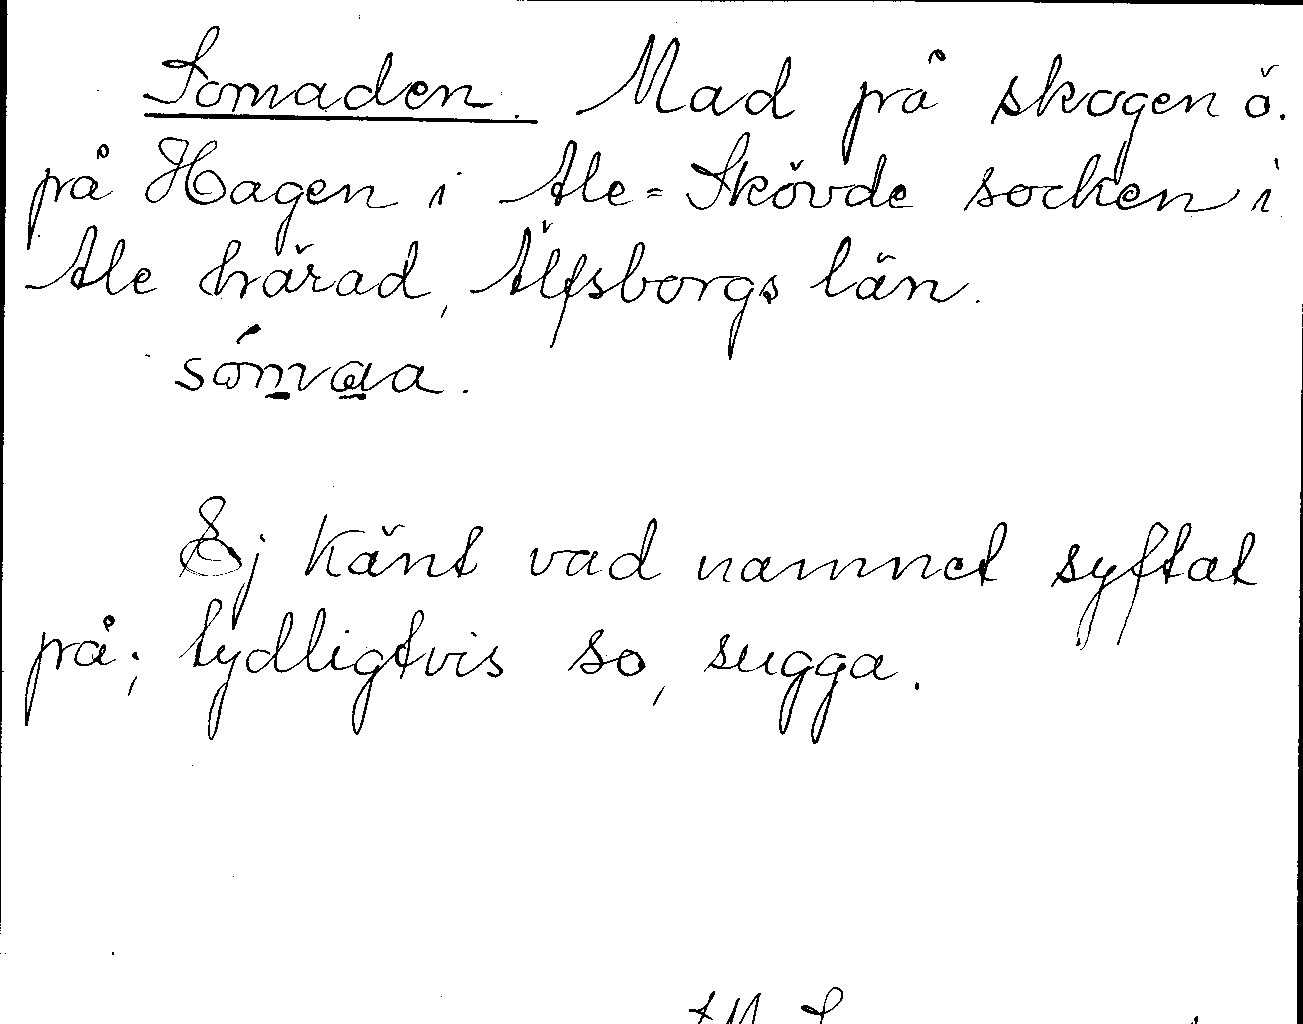 Somaden. Mad på skogen ö.
på Hagen i Ale-Skövde socken i
Ale härad, Älfsborgs län.
Ej känt vad namnet syftat
på; tydligtvis so, sugga.